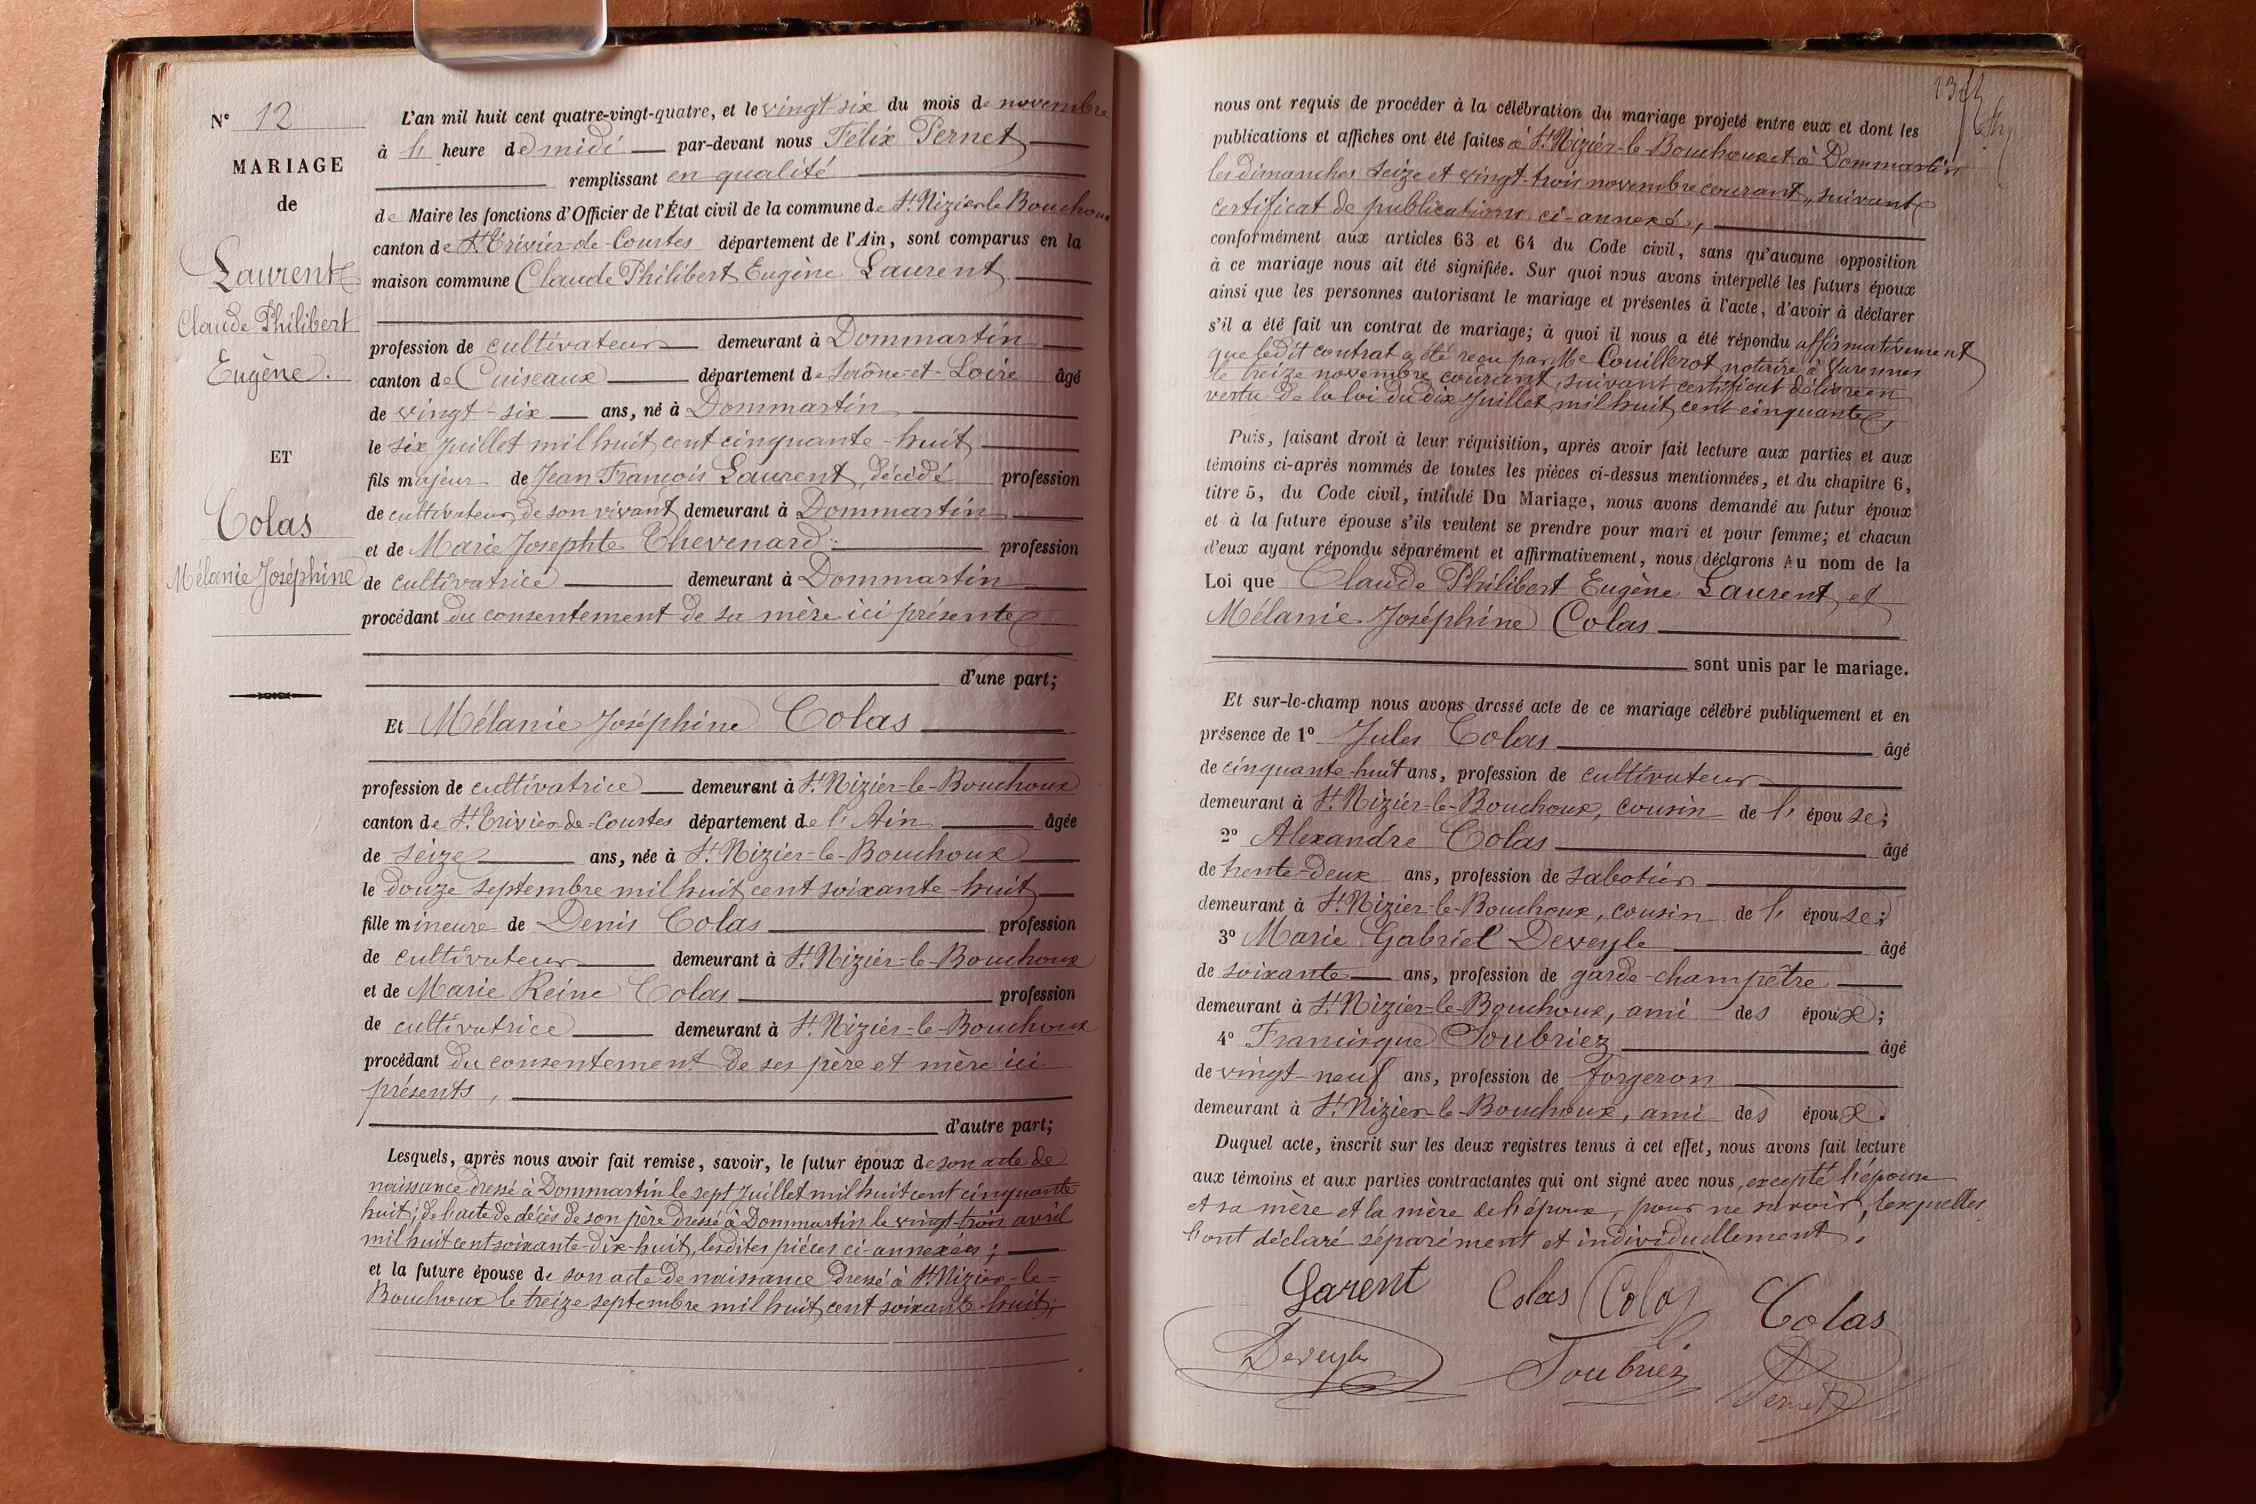 N° 12
MARIAGE
de
Laurent
Claude Philibert
Eugène.
ET
Colas
Mélanie Joséphine
L'an mil huit cent quatre-vingt-quatre, et le vingt-six du mois de novembre
à l' heure de midi par-devant nous Félix Pernet
remplissant en qualité
de Maire les fonctions d'Officier de l'État civil de la commune de St Nizier le Bouchoux
canton de St Trivier-de-Courtes département de l'Ain, sont comparus en la
maison commune Claude Philibert Eugène Laurent
profession de cultivateur demeurant à Dommartin
canton de Cuiseaux département de Saône-et-Loire âgé
de vingt-six ans, né à Dommartin
le six Juillet mil huit cent cinquante-huit
fils majeur de Jean François Laurent, décédé profession
de cultivateur de son vivant demeurant à Dommartin
et de Marie Josephte Thevenard profession
de cultivatrice demeurant à Dommartin
procédant du consentement de sa mère ici présente
d'une part;
Et Mélanie Joséphine Colas
profession de cultivatrice demeurant à St Nizier-le-Bouchoux
canton de St Trivier-de-Courtes département de l'Ain âgée
de seize ans, née à St Nizier-le-Bouchoux
le douze septembre mil huit cent soixante-huit
fille mineure de Denis Colas profession
de cultivateur demeurant à St Nizier-le-Bouchoux
et de Marie Reine Colas profession
de cultivatrice demeurant à St Nizier-le-Bouchoux
procédant du consentement de ses père et mère ici
présents,
d'autre part;
Lesquels, après nous avoir fait remise, savoir, le futur époux de son acte de
naissance dressé à Dommartin le sept Juillet mil huit cent cinquante
huit; de l'acte de décès de son père dressé à Dommartin le vingt-trois avril
mil huit cent soixante-dix-huit, lesdites pièces ci-annexées;
et la future épouse de son acte de naissance dressé à St Nizier-le-
Bouchoux le treize septembre mil huit cent soixante-huit;
nous ont requis de procéder à la célébration du mariage projeté entre eux et dont les
publications et affiches ont été faites à St Nizier-le-Bouchoux et à Dommartin
les dimanches seize et vingt-trois novembre courant, suivant
certificat de publications ci-annexé,
conformément aux articles 63 et 64 du Code civil, sans qu'aucune opposition
à ce mariage nous ait été signifiée. Sur quoi nous avons interpellé les futurs époux
ainsi que les personnes autorisant le mariage et présentes à l'acte, d'avoir à déclarer
s'il a été fait un contrat de mariage; à quoi il nous a été répondu affirmativement
que ledit contrat a été reçu par Me Couillerot notaire à Varennes
le treize novembre courant, suivant certificat délivré en
vertu de la loi du dix Juillet mil huit cent cinquante,
Puis, faisant droit à leur réquisition, après avoir fait lecture aux parties et aux
témoins ci-après nommés de toutes les pièces ci-dessus mentionnées, et du chapitre 6,
titre 5, du Code civil, intitulé Du Mariage, nous avons demandé au futur époux
et à la future épouse s'ils veulent se prendre pour mari et pour femme; et chacun
d'eux ayant répondu séparément et affirmativement, nous déclarons Au nom de la
Loi que Claude Philibert Eugène Laurent et
Mélanie Joséphine Colas
sont unis par le mariage.
Et sur-le-champ nous avons dressé acte de ce mariage célébré publiquement et en
présence de 1° Jules Colas âgé
de cinquante-huit ans, profession de cultivateur
demeurant à St Nizier-le-Bouchoux, cousin de l'épouse;
2° Alexandre Colas âgé
de trente-deux ans, profession de sabotier
demeurant à St Nizier-le-Bouchoux, cousin de l'épouse;
3° Marie Gabriel Deveyle âgé
de soixante ans, profession de garde-champêtre
demeurant à St Nizier-le-Bouchoux, ami des époux;
4° Francisque Soubriez âgé
de vingt-neuf ans, profession de forgeron
demeurant à St Nizier-le-Bouchoux, ami des époux.
Duquel acte, inscrit sur les deux registres tenus à cet effet, nous avons fait lecture
aux témoins et aux parties contractantes qui ont signé avec nous, excepté l'épouse
et sa mère et la mère de l'époux, pour ne savoir, lesquelles
l'ont déclaré séparément et individuellement.
Larent Colas Colas Colas
Deveyle Soubriez Pernet